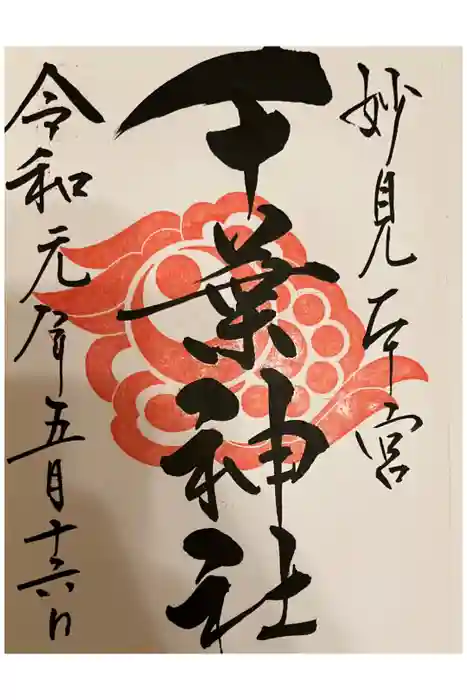 妙見本宮
千葉神社
令和元年五月十六日